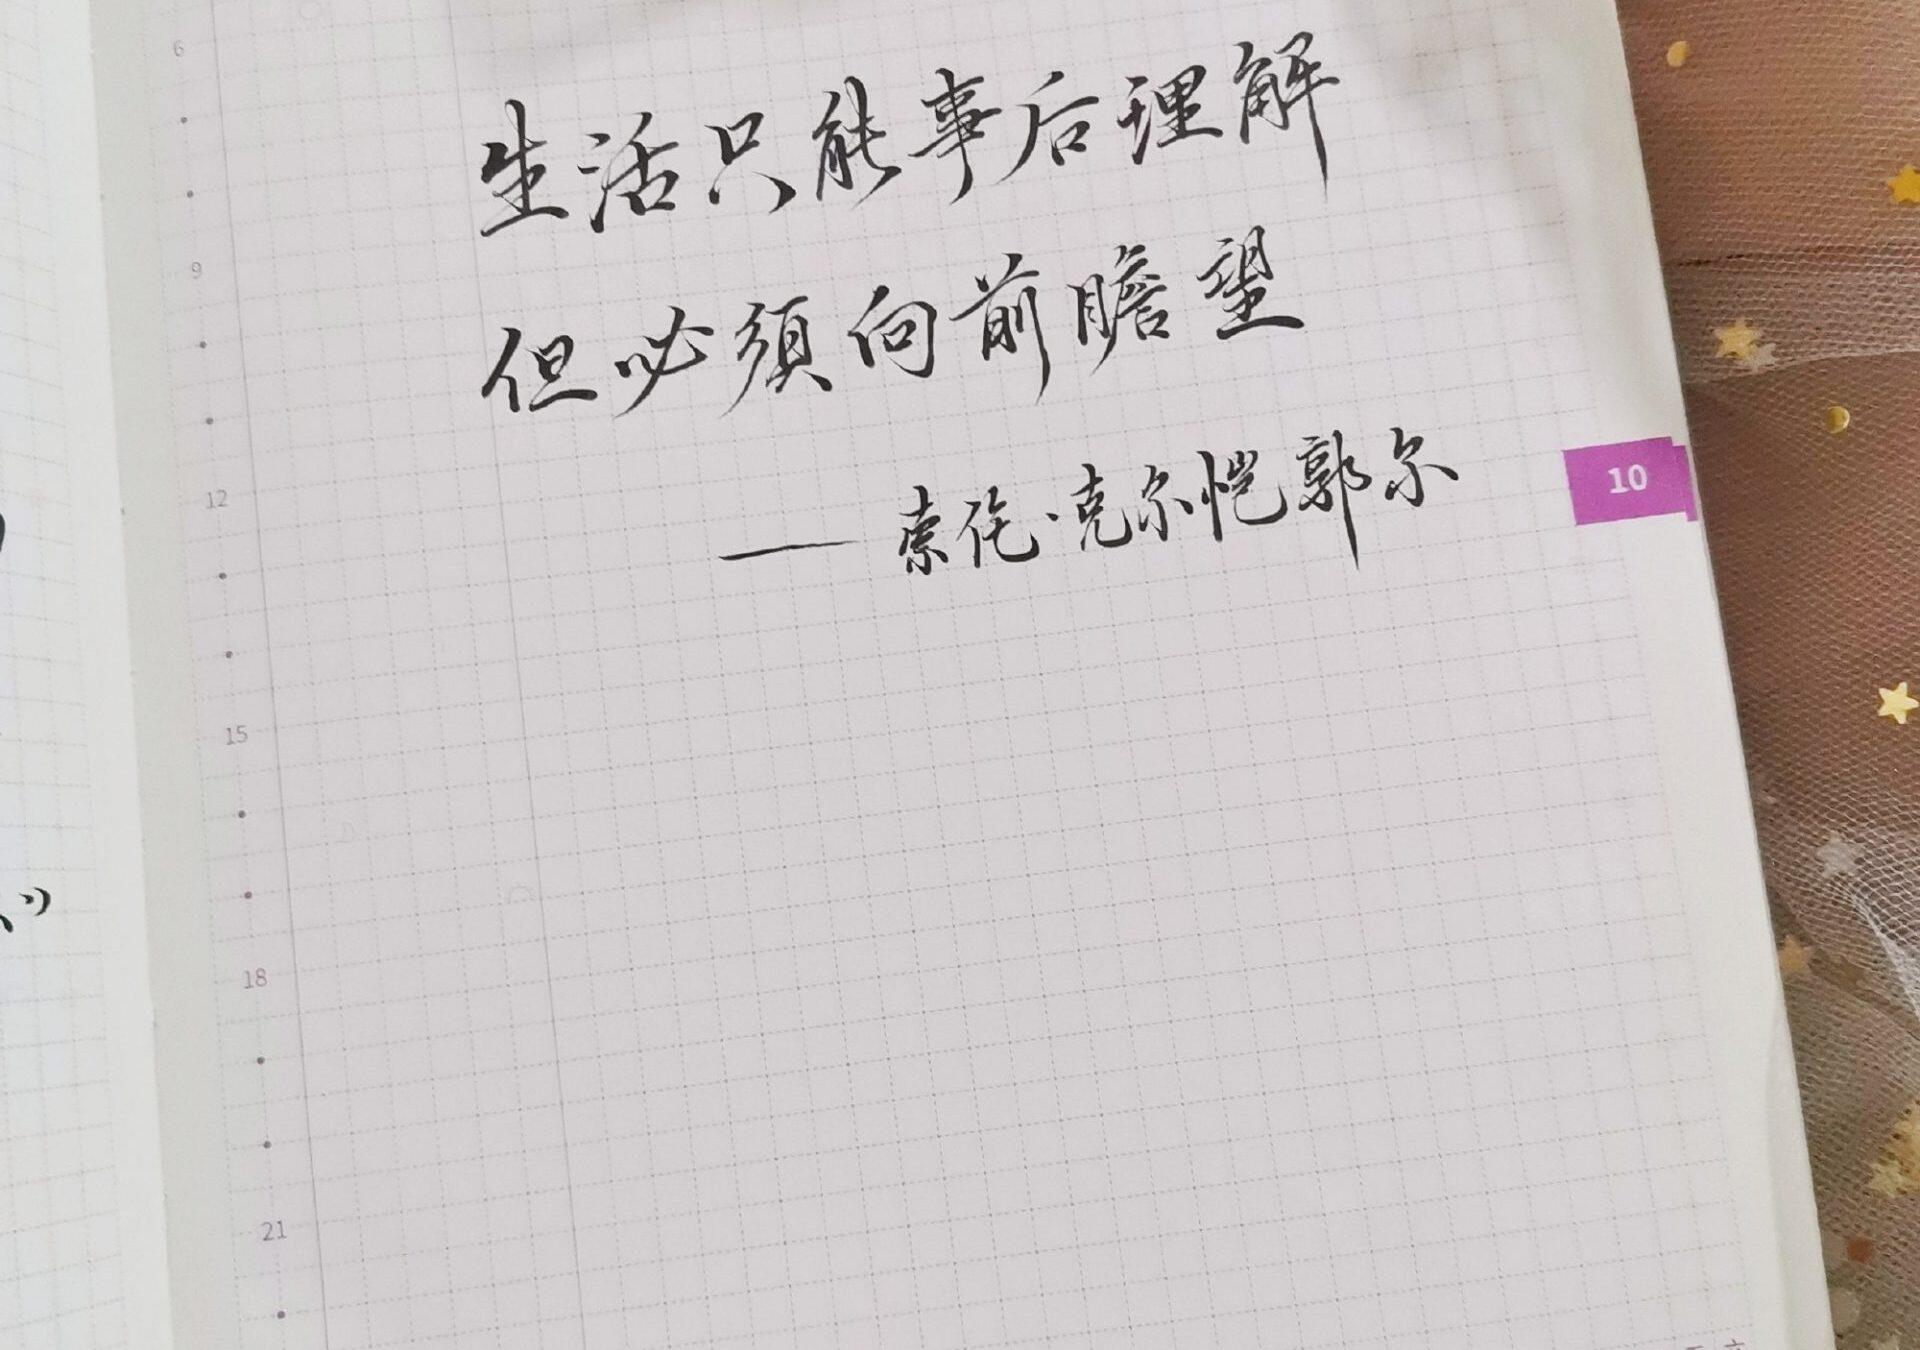 6
生活只能事后理解
9
但必须向前瞻望
12
——索伦·克尔恺郭尔
10
15
18
21